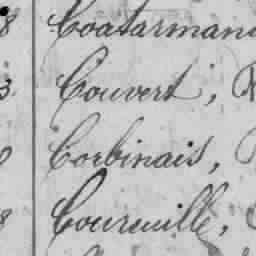 8 Coatarmana
3 Couvert,
Corbinais,
8 Coureuille,